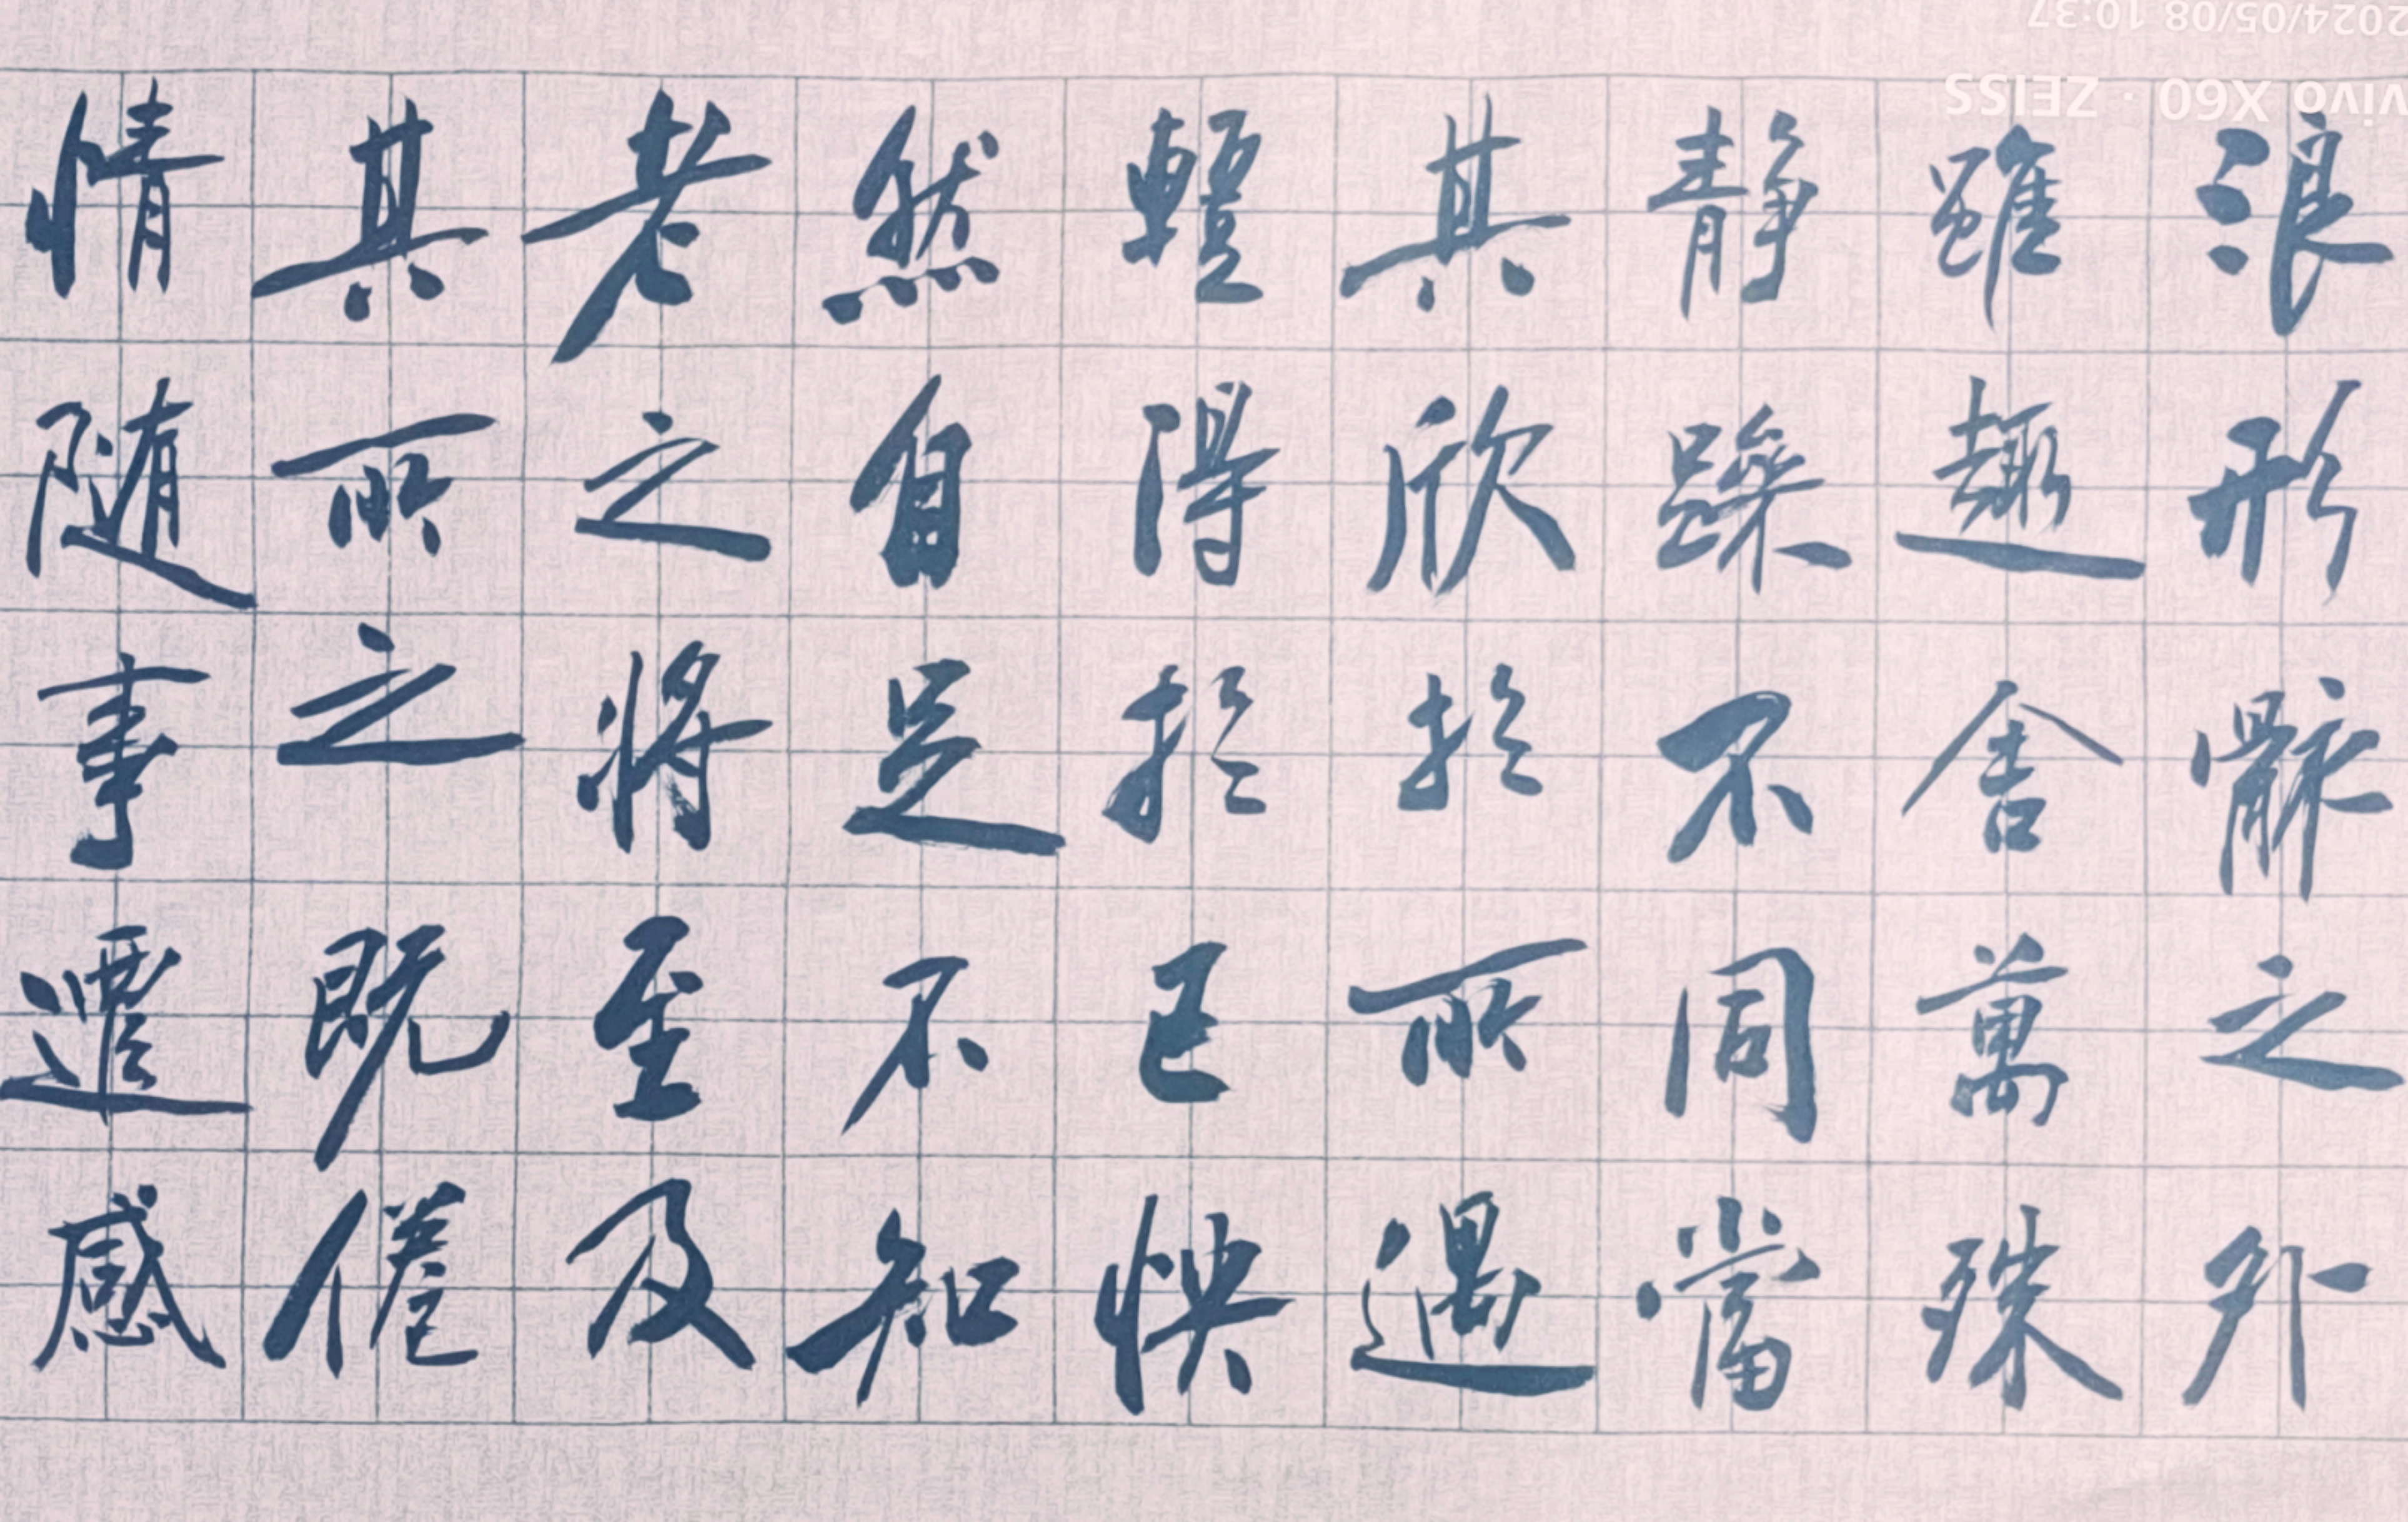 浪形骸之外
雖趣舍萬殊
静躁不同當
其欣於所遇
蹔得於己快
然自足不知
老之將至及
其所之既倦
情随事遷感
vivo X60 · ZEISS
2024/05/08 10:37